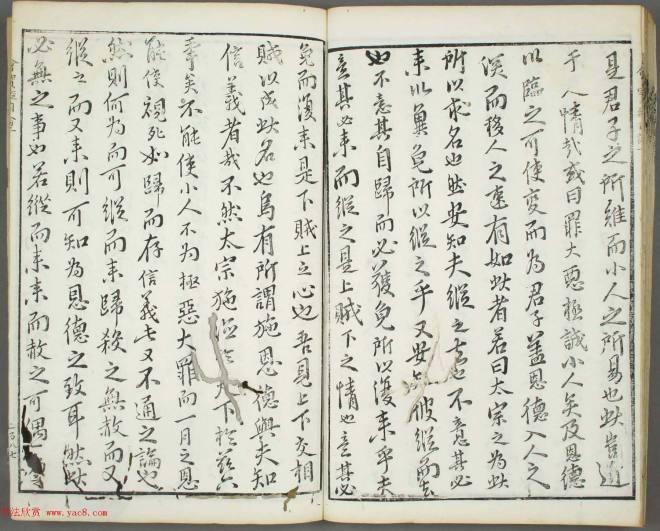 是君子之所難而小人之所易也此豈近
于人情哉或曰罪大惡極誠小人矣及恩德
以臨之可使變而為君子蓋恩德入人之
深而移人之速有如此者若曰太宗之為此
所以求名也然安知夫縱之去也不意其必
來以冀免所以縱之乎又安知彼縱而去
也不意其自歸而必獲免所以復來乎夫
意其必來而縱之是上賊下之情也意其必
免而復來是下賊上之心也吾見上下交相
賊以成此名也烏有所謂施恩德與夫知
信義者哉不然太宗施德於天下於茲六
年矣不能使小人不為極惡大罪而一日之恩
能使視死如歸而存信義此又不通之論也
然則何為而可縱而來歸殺之無赦而又
縱之而又來則可知為恩德之致耳然此
必無之事也若縱而來來而赦之可偶
二百八七
书法欣赏 www.yac8.com